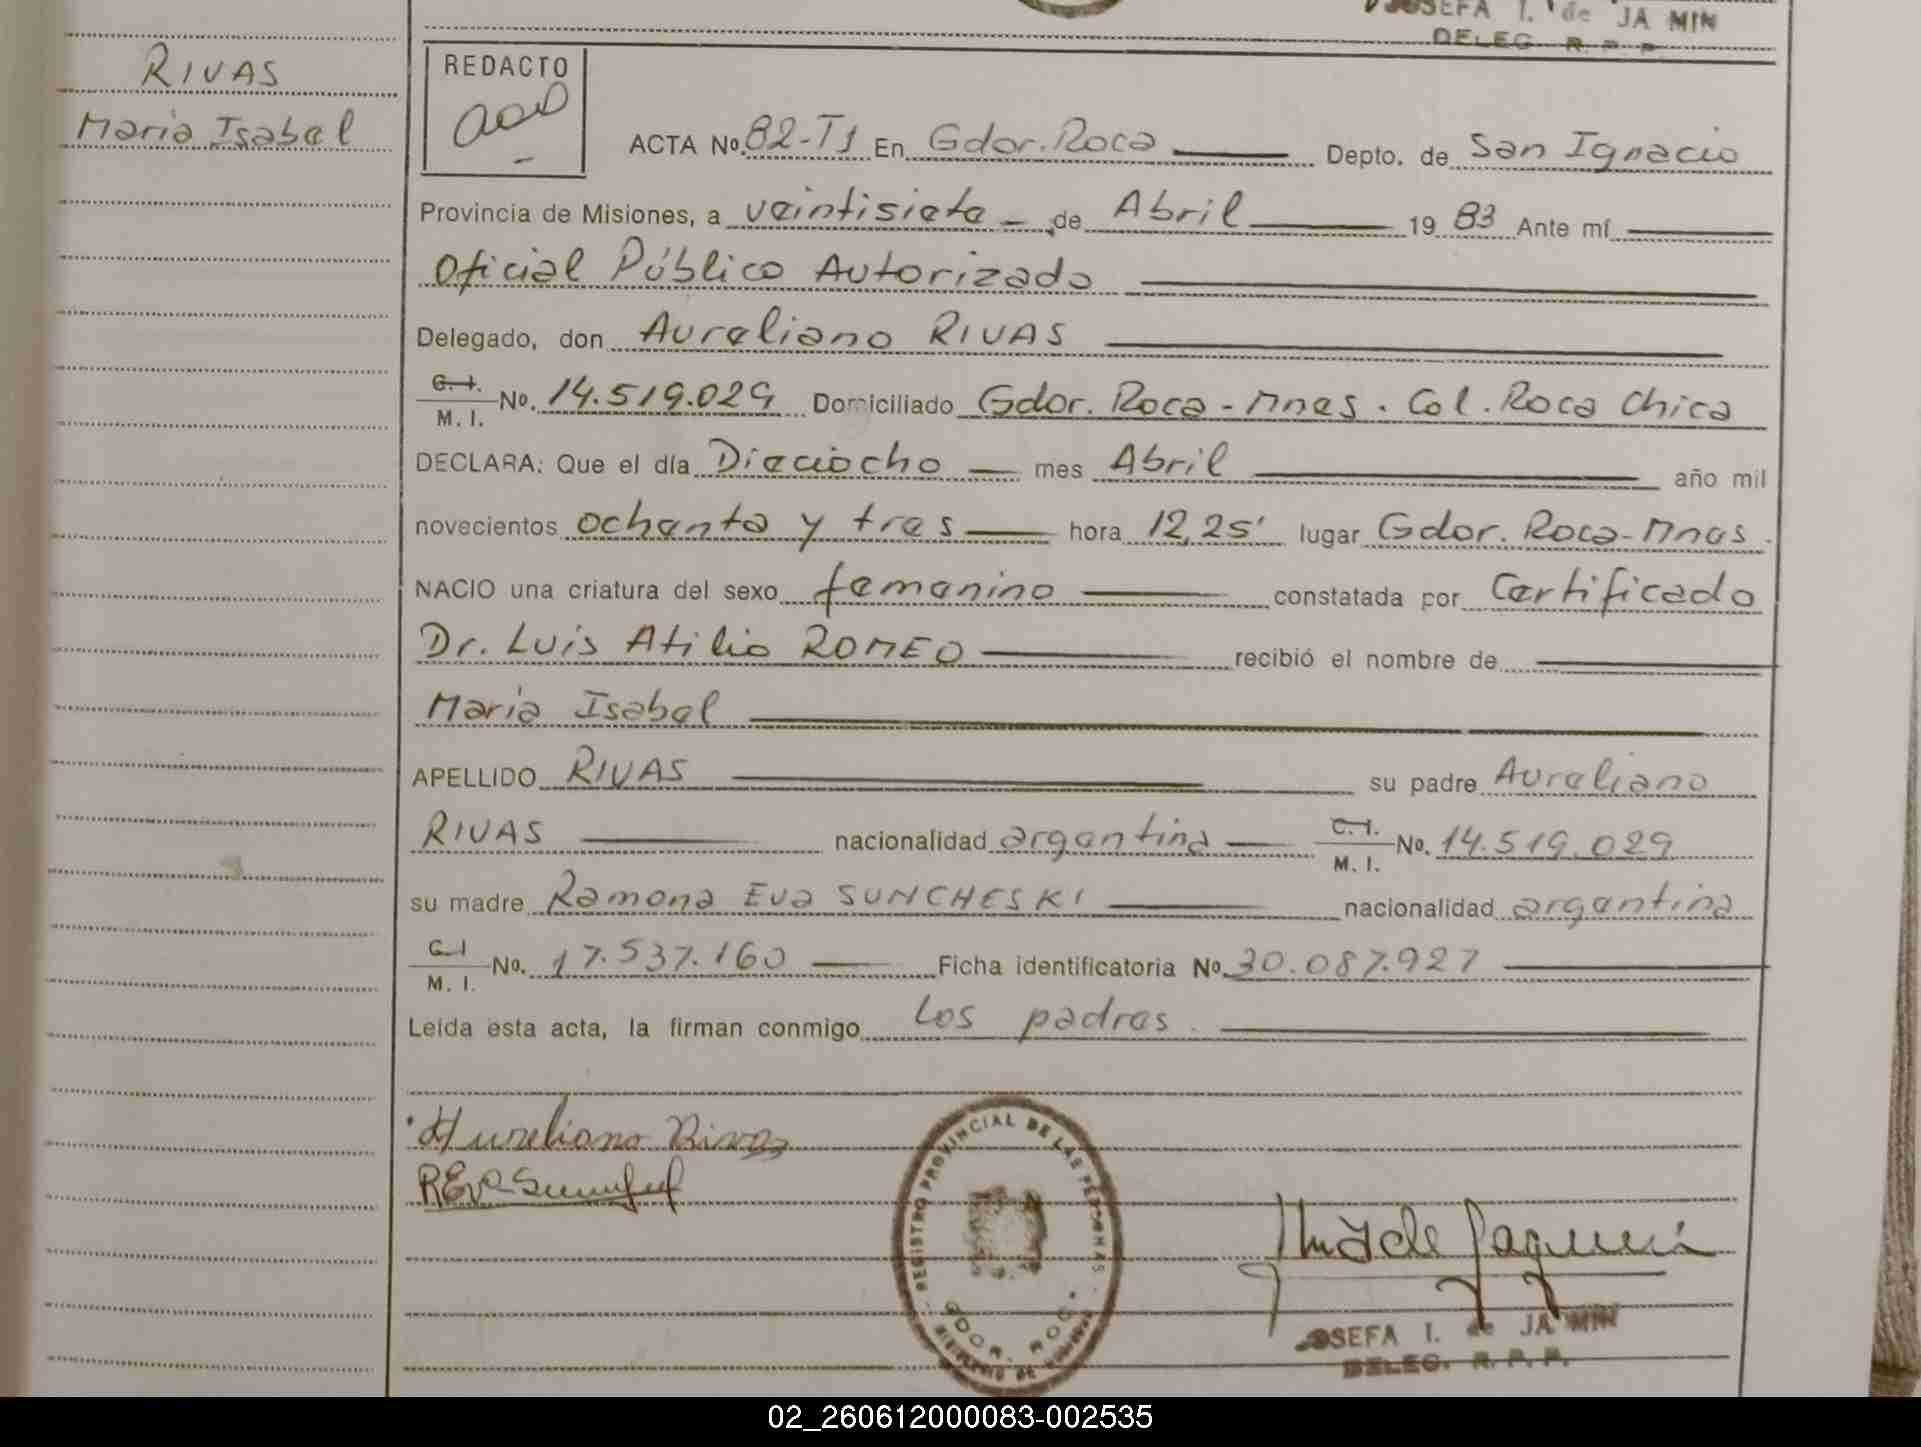 JOSEFA I. de JA MIN
DELEG. R. P. P.
RIVAS
Maria Isabel
REDACTO
ACTA No. 82-T1 En Gdor. Roca Depto. de San Ignacio
Provincia de Misiones, a veintisiete de Abril 1983 Ante mí
Oficial Público Autorizado
Delegado, don Aureliano RIVAS
C. I. / M. I. No. 14.519.029 Domiciliado Gdor. Roca - Mnes. Col. Roca Chica
DECLARA: Que el día Dieciocho mes Abril año mil
novecientos ochenta y tres hora 12,25' lugar Gdor. Roca - Mnes.
NACIO una criatura del sexo femenino constatada por Certificado
Dr. Luis Atilio ROMEO recibió el nombre de
Maria Isabel
APELLIDO RIVAS su padre Aureliano
RIVAS nacionalidad argentina C. I. / M. I. No. 14.519.029
su madre Ramona Eva SUNCHESKI nacionalidad argentina
C. I / M. I. No. 17.537.160 Ficha identificatoria No 30.087.927
Leída esta acta, la firman conmigo los padres.
Aureliano Rivas
REva
REGISTRO PROVINCIAL DE LAS PERSONAS
GDOR. ROCA
JOSEFA I. de JA MIN
DELEG. R. P. P.
02_260612000083-002535